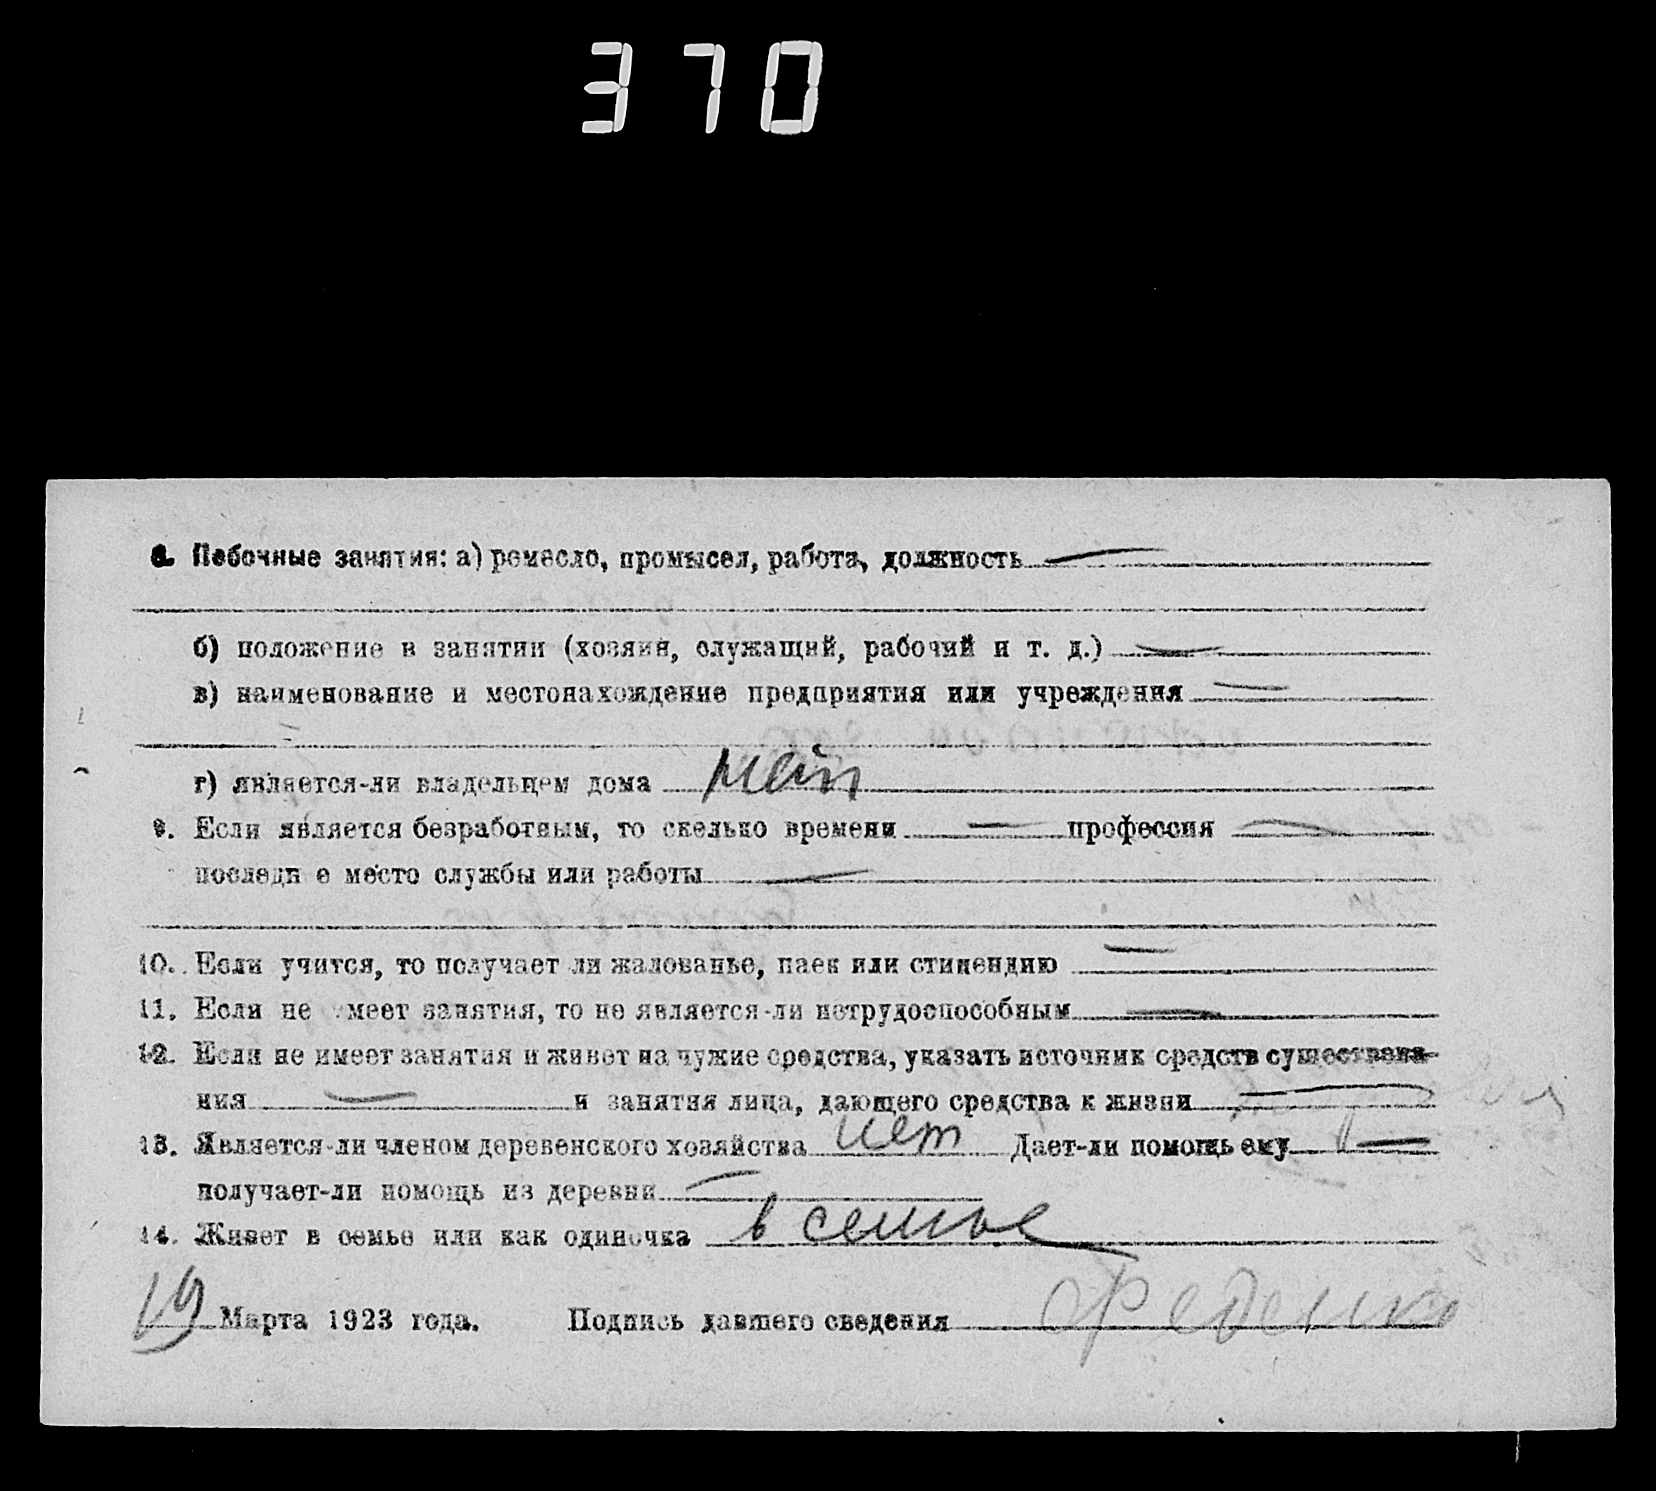 370
8. Побочные занятия: а) ремесло, промысел, работа, должность —
б) положение в занятии (хозяин, служащий, рабочий и т. д.) —
в) наименование и местонахождение предприятия или учреждения —
г) является-ли владельцем дома нет
9. Если является безработным, то сколько времени — профессия —
последн е место службы или работы —
10. Если учится, то получает ли жалованье, паек или стипендию —
11. Если не имеет занятия, то не является-ли нетрудоспособным —
12. Если не имеет занятия и живет на чужие средства, указать источник средств существова-
ния — и занятия лица, дающего средства к жизни —
13. Является-ли членом деревенского хозяйства нет Дает-ли помощь ему —
получает-ли помощь из деревни —
14. Живет в семье или как одиночка в семье
19 Марта 1923 года. Подпись давшего сведения Феденко